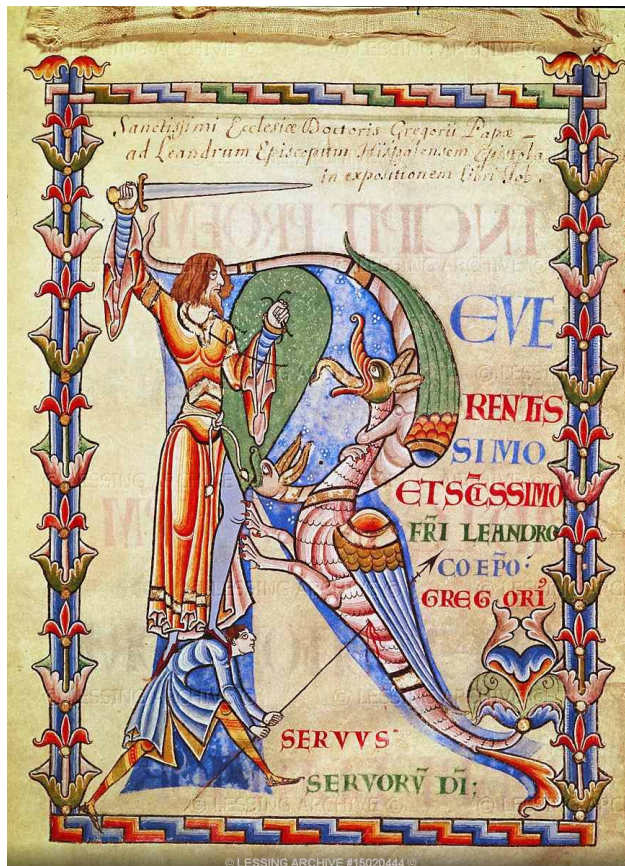 Sanctissimi Ecclesiæ Doctoris Gregorii Papæ
ad Leandrum Episcopum Hispalensem Epistola
in expositionem libri Iob.
EVE
RENTIS
SIMO
ETSC̄ISSIMO
FR̄I LEANDRO
CO EP̄O:
GREGORI᾿
SERVVS
SERVORV̄ DI:
© LESSING ARCHIVE #15020444 ©